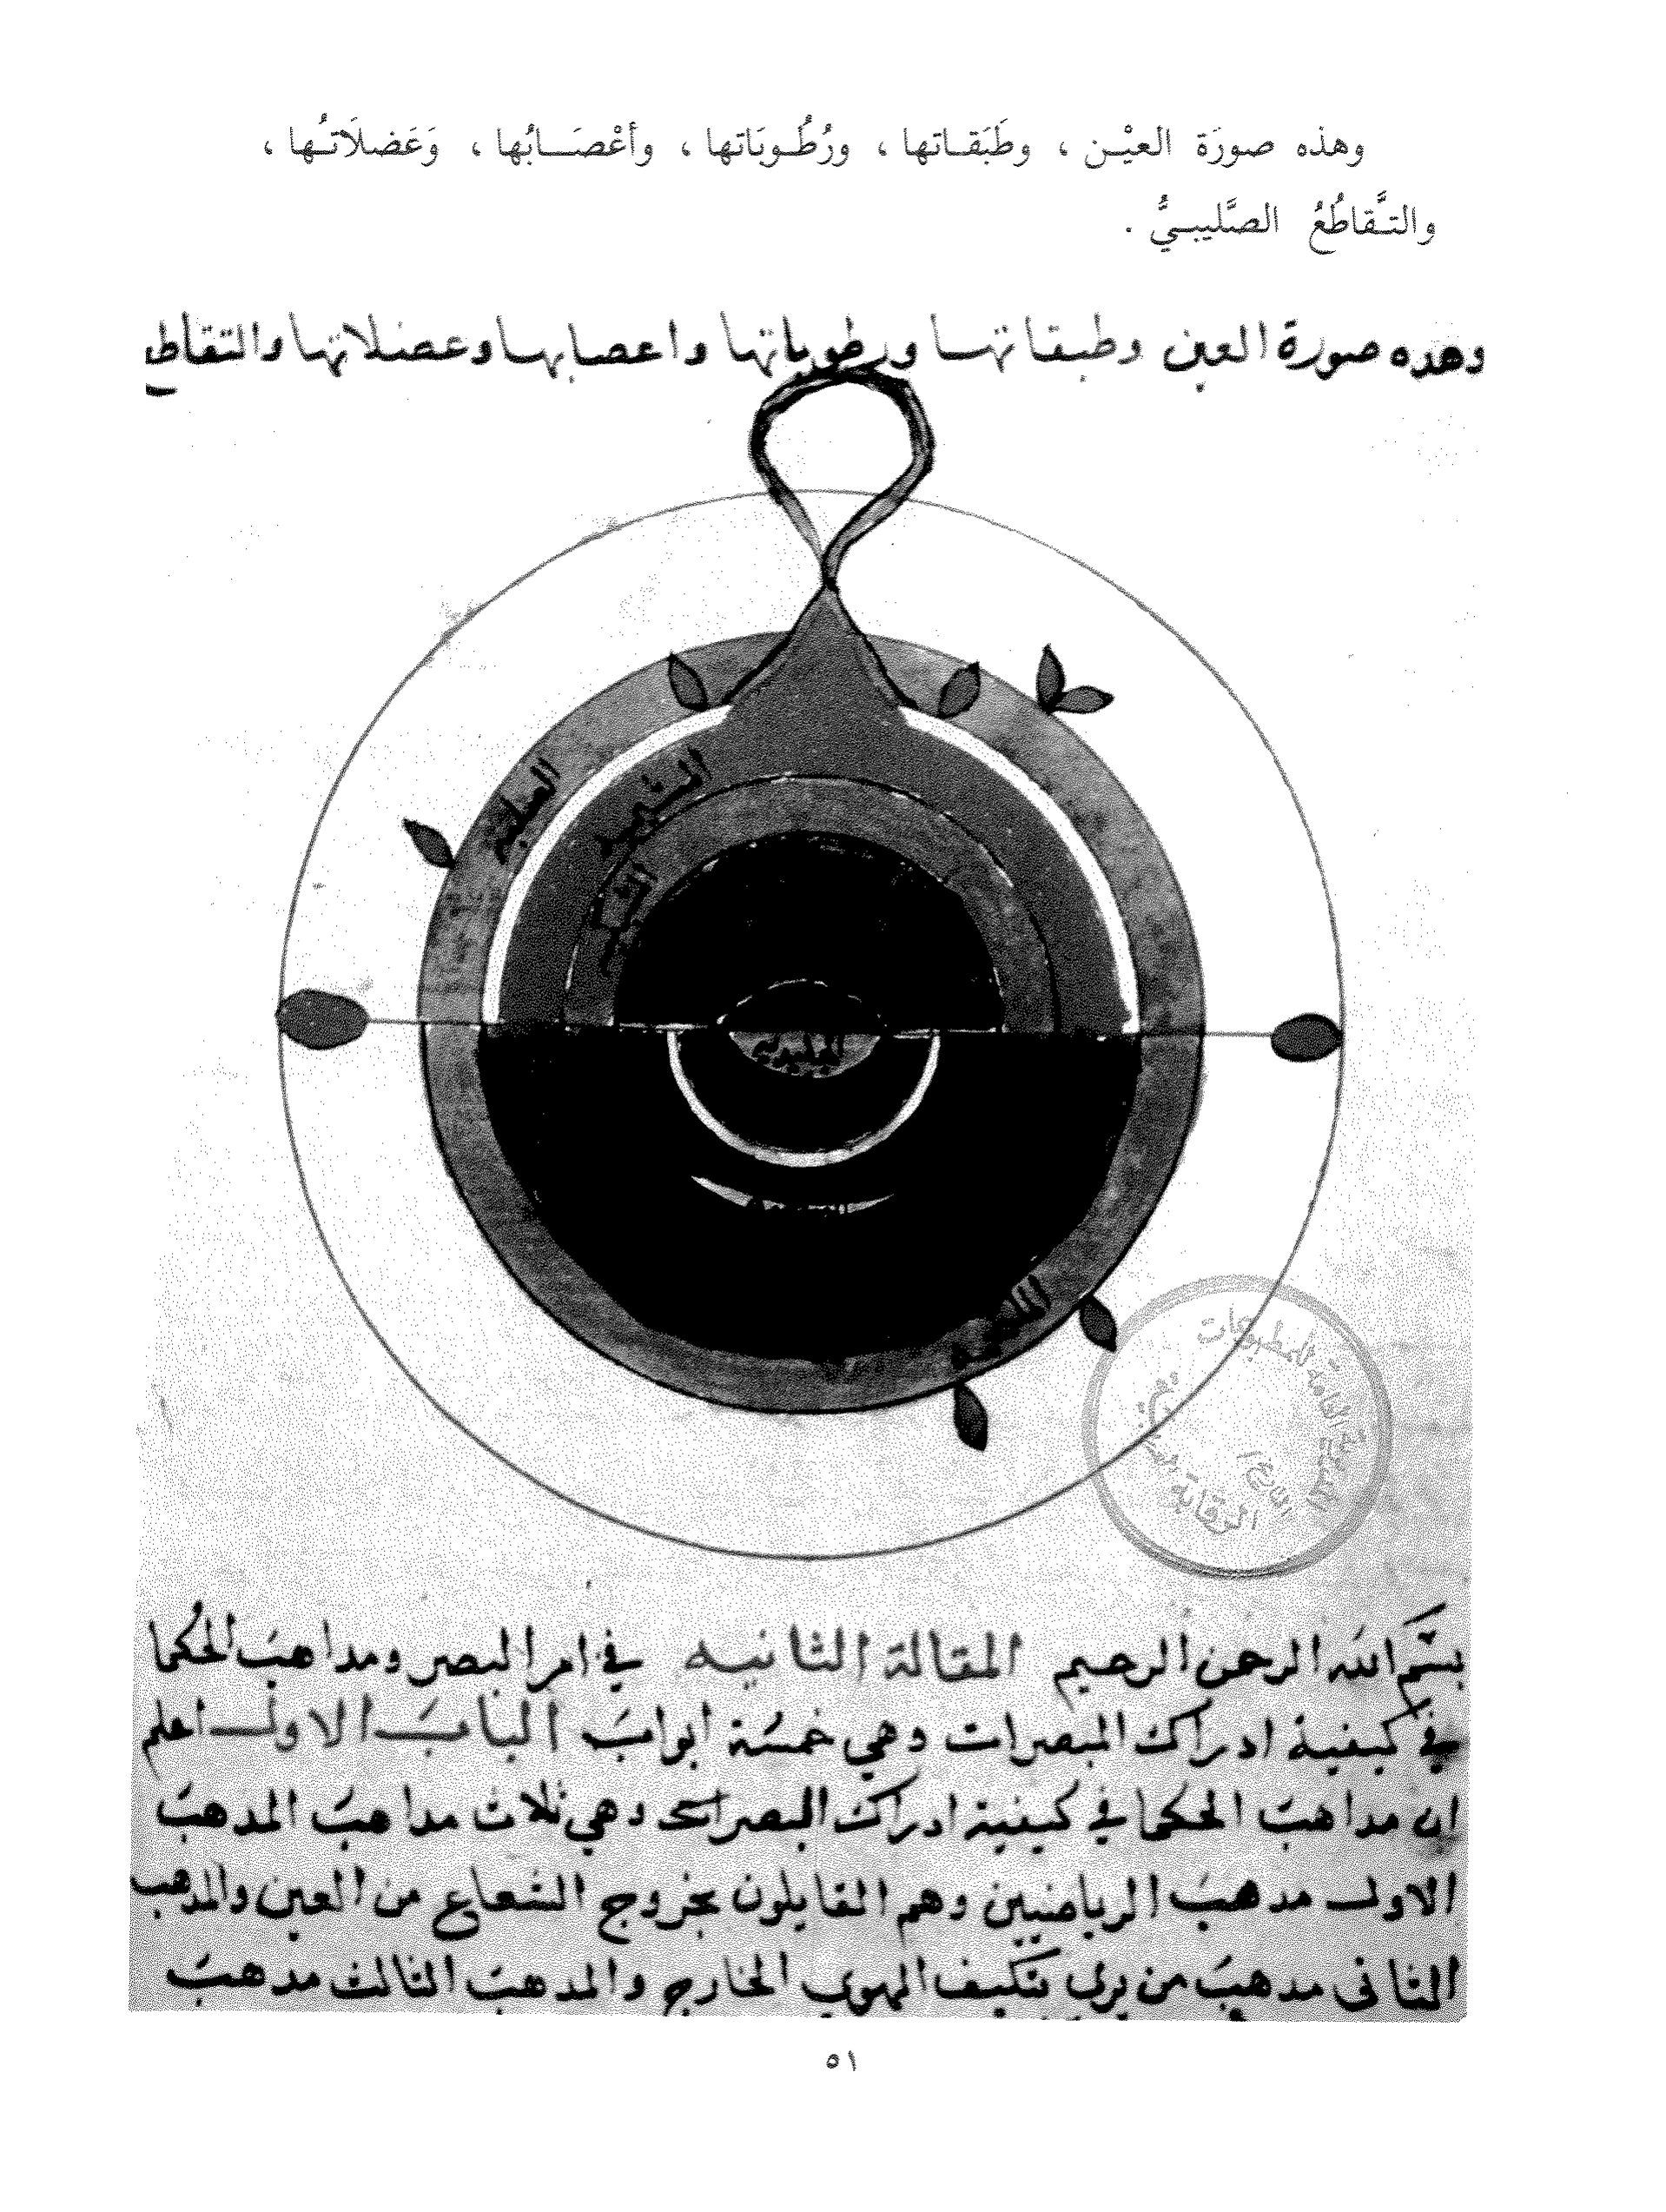 وهذه صورَة العيْـن ، وطَبَقـاتها ، ورُطُـوبَاتها ، وأعْصَـــابُها ، وَعَضلَاتـُـها ،
والتـَّقاطُعُ الصَّليبـيُّ .
وهذه صورة العين وطبقاتها ورطوباتها واعصابها وعضلاتها والتقاطع
الصلبة
المشيمية
الشبكية
الجليدية
الملتحم
العامة للمطبوعات
الرقابة
بسم الله الرحمن الرحيم المقالة الثانيه في امر البصر ومداهب الحكما
في كيفية ادراك المبصرات وهي خمسة ابواب الباب الاول اعلم
ان مداهب الحكما في كيفية ادراك البصرات وهي ثلاث مداهب المدهب
الاول مدهب الرياضيين وهم القايلون بخروج الشعاع من العين والمدهب
الثاني مدهب من يري بتكيف الهوي الخارج والمدهب الثالث مدهب
٥١